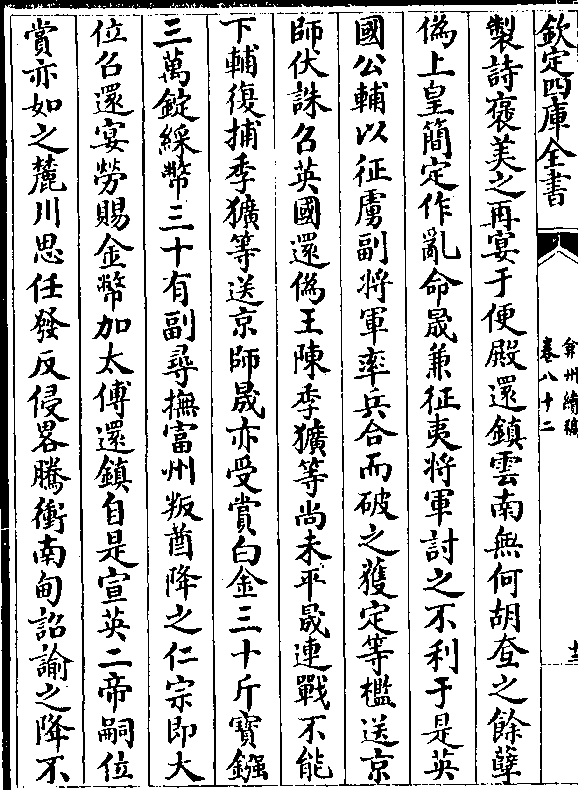 欽定四庫全書
弇州續稿
卷八十二
製詩褒美之再宴于便殿還鎮雲南無何胡𡗝之餘孽
偽上皇簡定作亂命晟兼征夷將軍討之不利于是英
國公輔以征虜副將軍率兵合而破之獲定等檻送京
師伏誅召英國還偽王陳季獷等尚未平晟連戰不能
下輔復捕季獷等送京師晟亦受賞白金三十斤寶鏹
三萬錠綵幣三十有副尋撫富州叛酋降之仁宗即大
位召還宴勞賜金幣加太傅還鎮自是宣英二帝嗣位
賞亦如之麓川思任發反侵畧騰衝南甸詔諭之降不